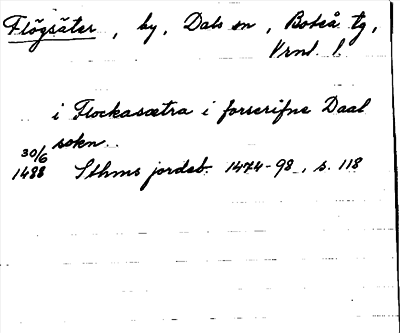 Flögsäter, by, Dals sn, Boteå tg,
Vrnl. l.
i Flockasætra i forscrifne Daal
sokn.
30/6
1488 Sthms jordeb. 1474-98, s. 118